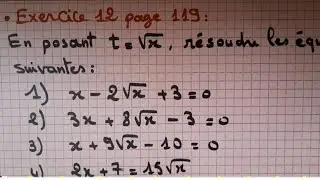 • Exercice 12 page 119:
En posant t = √x, résoudre les équ
suivantes:
1) x - 2√x + 3 = 0
2) 3x + 8√x - 3 = 0
3) x + 9√x - 10 = 0
4) 2x + 7 = 15√x